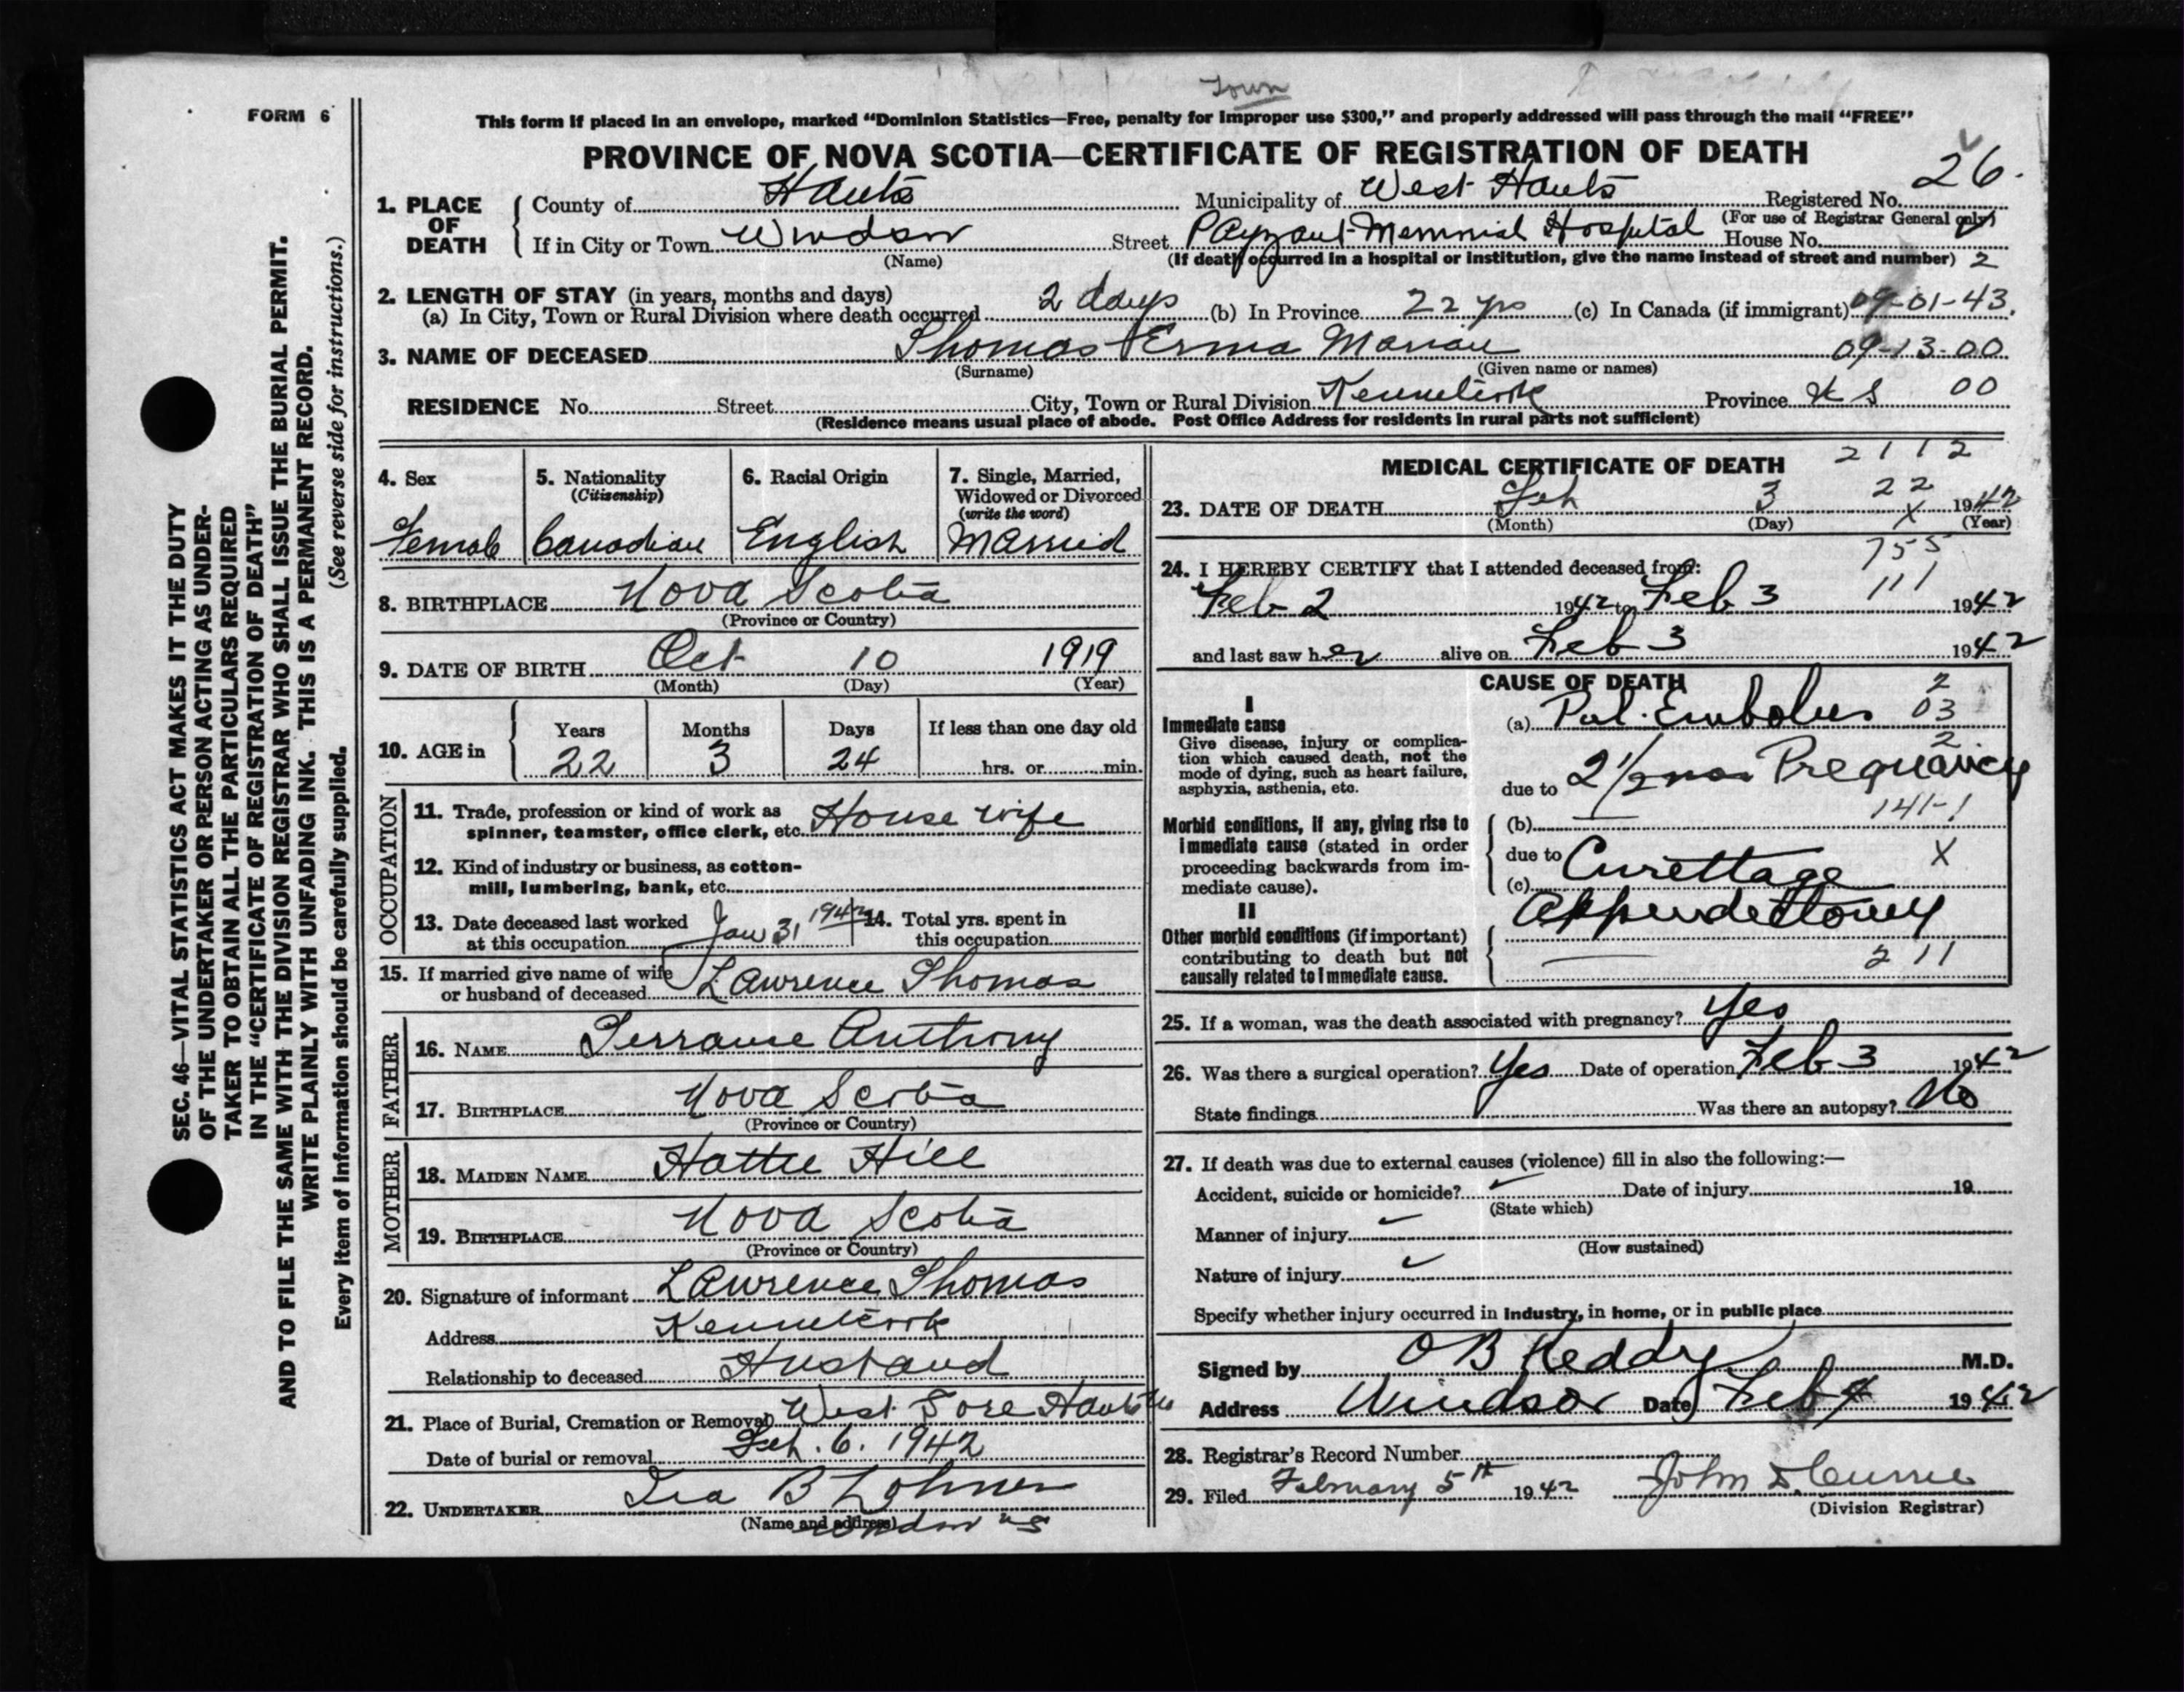 Town
FORM 6
This form if placed in an envelope, marked “Dominion Statistics—Free, penalty for improper use $300,” and properly addressed will pass through the mail “FREE”
PROVINCE OF NOVA SCOTIA—CERTIFICATE OF REGISTRATION OF DEATH
26.
1. PLACE OF DEATH County of Hants Municipality of West Hants Registered No.
(For use of Registrar General only)
If in City or Town Windsor Street Payzant Memorial Hospital House No.
(Name) (If death occurred in a hospital or institution, give the name instead of street and number) 2
2. LENGTH OF STAY (in years, months and days)
(a) In City, Town or Rural Division where death occurred 2 days (b) In Province 22 yrs (c) In Canada (if immigrant) 09-01-43.
3. NAME OF DECEASED Thomas Erma Marian 09-13-00
(Surname) (Given name or names)
RESIDENCE No. Street City, Town or Rural Division Kennetcook Province N S 00
(Residence means usual place of abode. Post Office Address for residents in rural parts not sufficient)
4. Sex 5. Nationality (Citizenship) 6. Racial Origin 7. Single, Married, Widowed or Divorced (write the word)
Female Canadian English Married
8. BIRTHPLACE Nova Scotia
(Province or Country)
9. DATE OF BIRTH Oct 10 1919
(Month) (Day) (Year)
10. AGE in Years Months Days If less than one day old
22 3 24 hrs. or min.
OCCUPATION
11. Trade, profession or kind of work as spinner, teamster, office clerk, etc. House wife
12. Kind of industry or business, as cotton-mill, lumbering, bank, etc.
13. Date deceased last worked at this occupation Jan 31 1942 14. Total yrs. spent in this occupation
15. If married give name of wife or husband of deceased Lawrence Thomas
FATHER
16. NAME Terrance Anthony
17. BIRTHPLACE Nova Scotia
(Province or Country)
MOTHER
18. MAIDEN NAME Hattie Hill
19. BIRTHPLACE Nova Scotia
(Province or Country)
20. Signature of informant Lawrence Thomas
Address Kennetcook
Relationship to deceased Husband
21. Place of Burial, Cremation or Removal West Gore Hants
Date of burial or removal Feb. 6. 1942
22. UNDERTAKER Ira B Lohnes
(Name and address) Windsor NS
MEDICAL CERTIFICATE OF DEATH 2112
22
23. DATE OF DEATH Feb 3 1942
(Month) (Day) X (Year)
755
24. I HEREBY CERTIFY that I attended deceased from:
111
Feb 2 1942 to Feb 3 1942
and last saw her alive on Feb 3 1942
CAUSE OF DEATH 2
I
Immediate cause (a) Pul. Embolus 03
Give disease, injury or complication which caused death, not the mode of dying, such as heart failure, asphyxia, asthenia, etc.
2
due to 2½ mos Pregnancy
141-1
Morbid conditions, if any, giving rise to immediate cause (stated in order proceeding backwards from immediate cause).
(b)
due to Curettage X
(c)
II Appendectomy
Other morbid conditions (if important) contributing to death but not causally related to immediate cause.
211
25. If a woman, was the death associated with pregnancy? Yes
26. Was there a surgical operation? Yes Date of operation Feb 3 1942
State findings Was there an autopsy? No
27. If death was due to external causes (violence) fill in also the following:—
Accident, suicide or homicide? Date of injury 19
(State which)
Manner of injury
(How sustained)
Nature of injury
Specify whether injury occurred in industry, in home, or in public place
Signed by O B Keddy M.D.
Address Windsor Date Feb 4 1942
28. Registrar's Record Number
29. Filed February 5th 1942 John D. Currie
(Division Registrar)
SEC. 46—VITAL STATISTICS ACT MAKES IT THE DUTY
OF THE UNDERTAKER OR PERSON ACTING AS UNDER-
TAKER TO OBTAIN ALL THE PARTICULARS REQUIRED
IN THE “CERTIFICATE OF REGISTRATION OF DEATH”
AND TO FILE THE SAME WITH THE DIVISION REGISTRAR WHO SHALL ISSUE THE BURIAL PERMIT.
WRITE PLAINLY WITH UNFADING INK. THIS IS A PERMANENT RECORD.
(See reverse side for instructions.)
Every item of information should be carefully supplied.